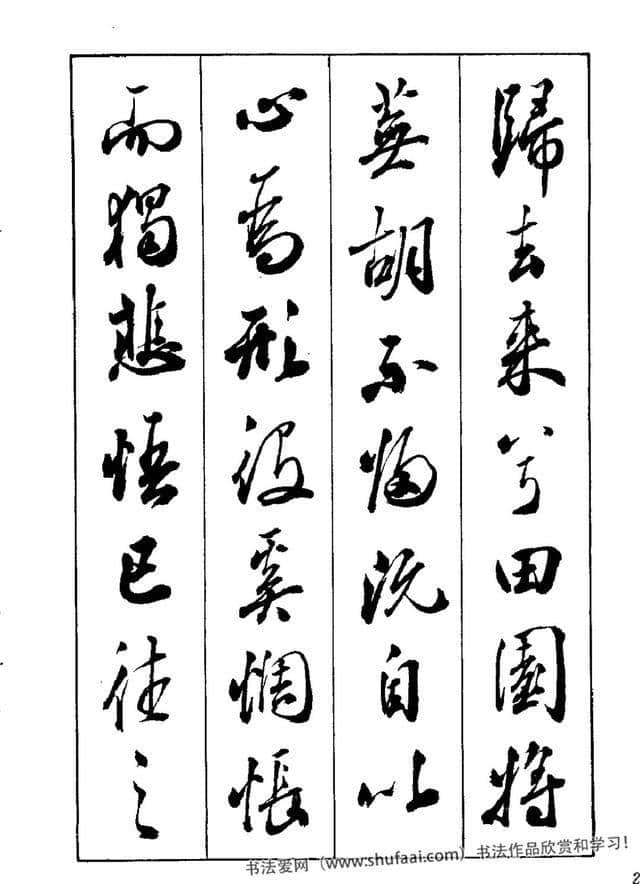 歸去来兮田園將
蕪胡不歸既自以
心為形役奚惆悵
而獨悲悟已往之
书法爱网（www.shufaai.com）书法作品欣赏和学习！
2